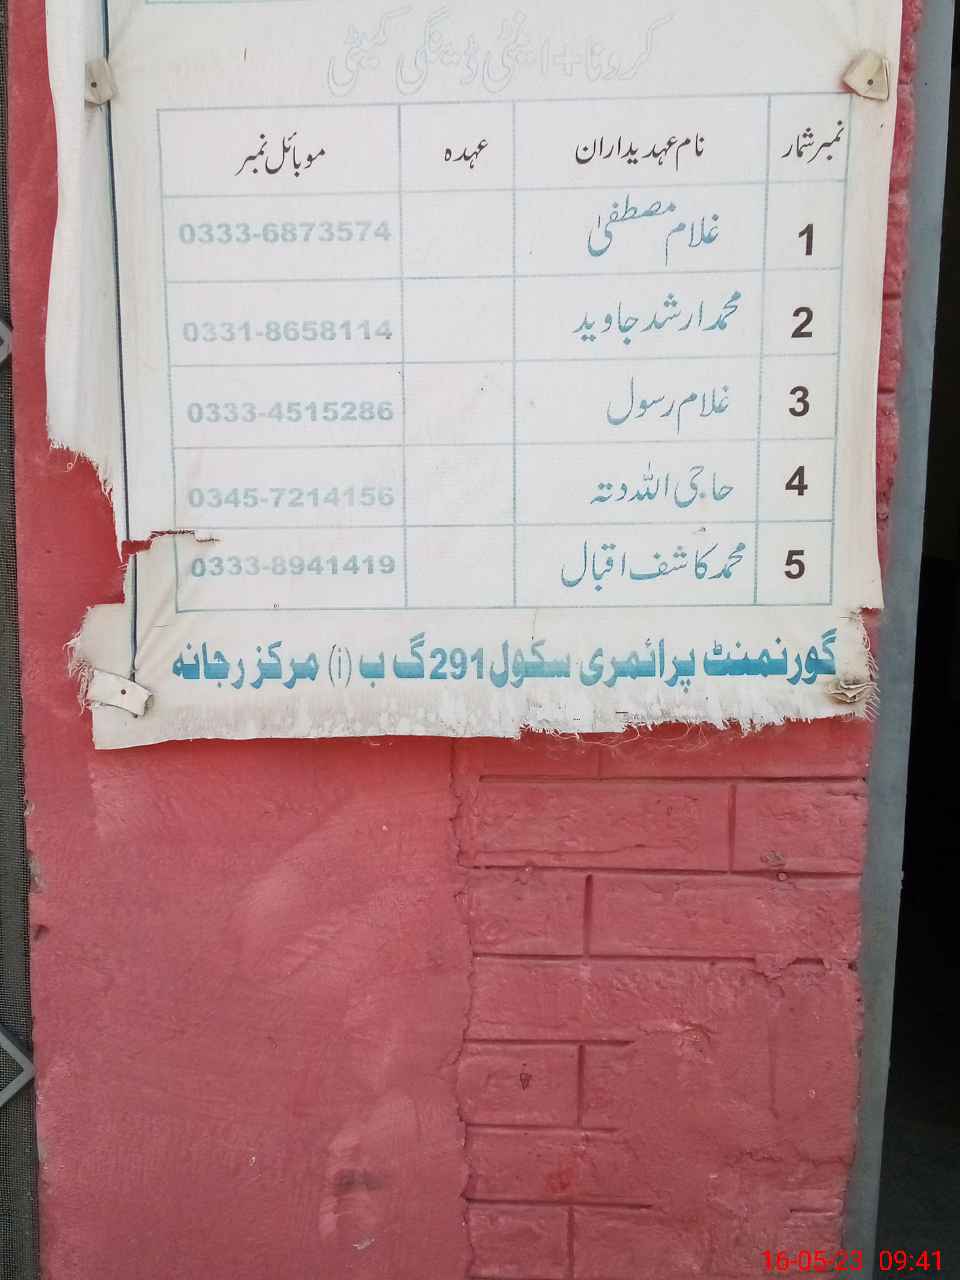 کرونا+اینٹی ڈینگی کمیٹی
نمبر شمار نام عہدیداران عہدہ موبائل نمبر
1 غلام مصطفیٰ 0333-6873574
2 محمد ارشد جاوید 0331-8658114
3 غلام رسول 0333-4515286
4 حاجی اللہ دتہ 0345-7214156
5 محمد کاشف اقبال 0333-8941419
گورنمنٹ پرائمری سکول 291 گ ب (i) مرکز رجانہ
16-05-23 09:41